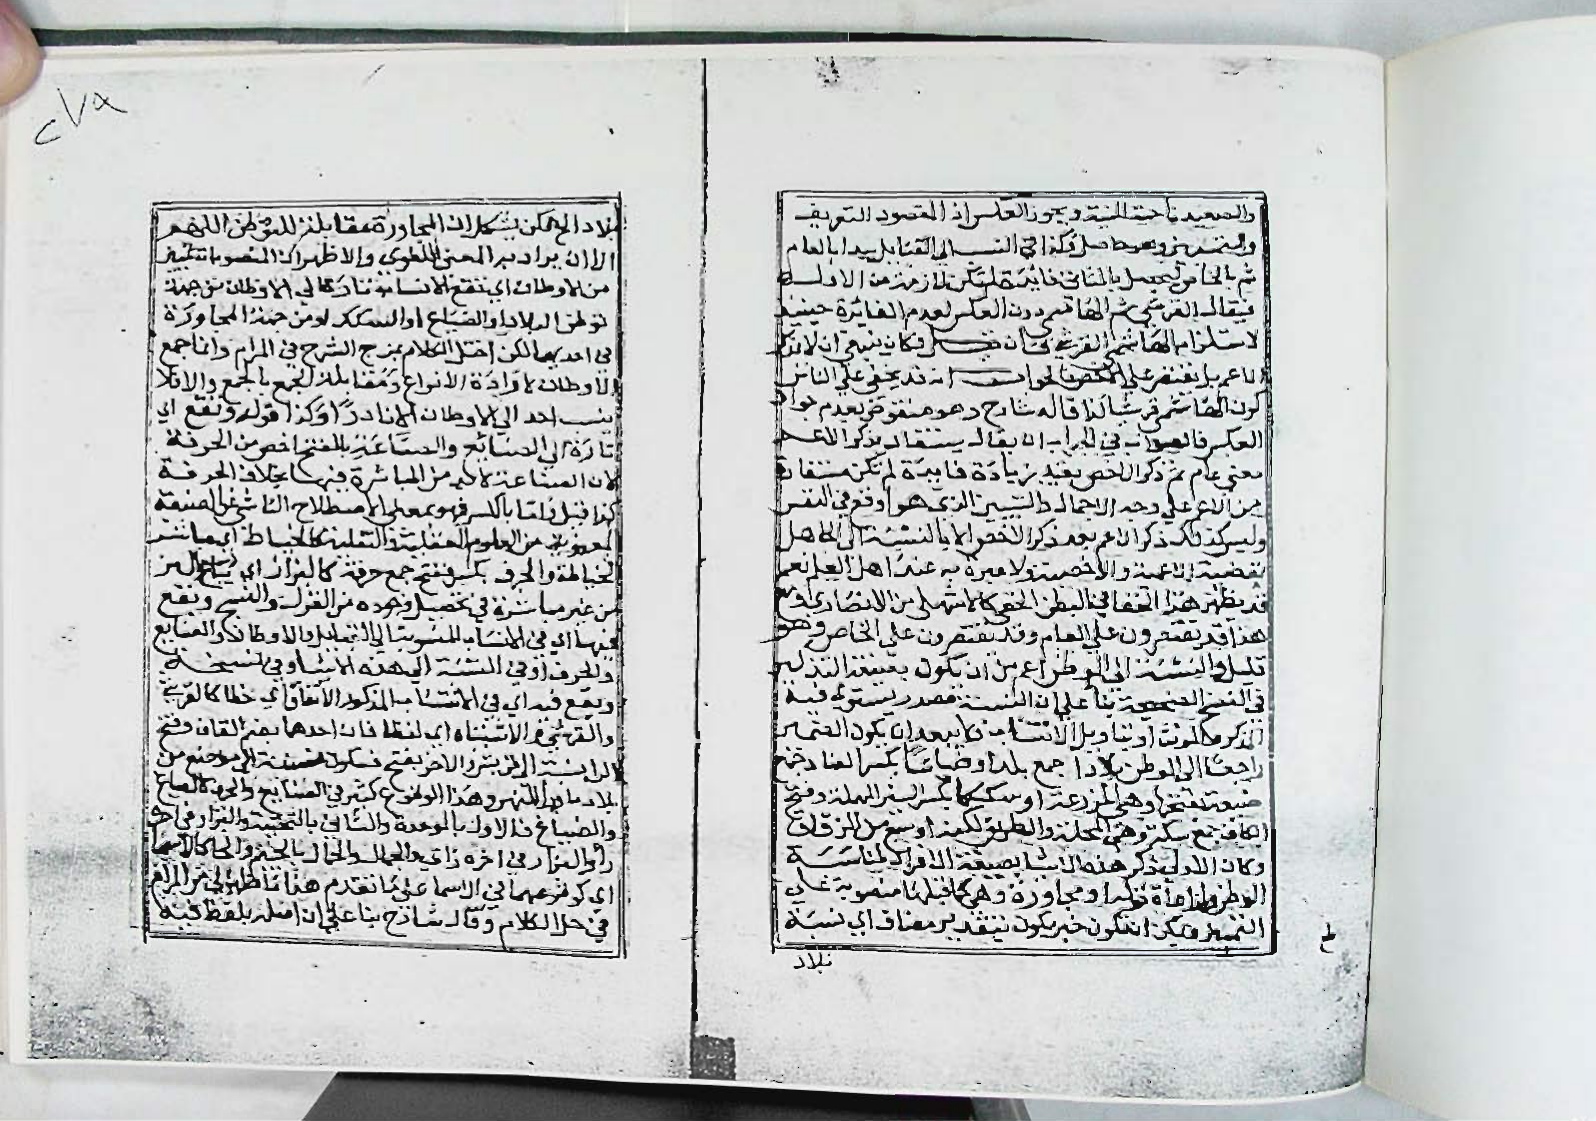 والصعيد ناحية المنية ويجوز العكس اذ المقصود التعريف
والتمييز وهو حاصل وكذا في النسب الى القبايل يبدا بالعام
ثم بالخاص ليحصل بالثاني فائدة لم تكن لازمة من الاول
فيقال القرشي ثم الهاشمي دون العكس لعدم الفايدة حينيذ
لاستلزام الهاشمي القرشي فان قيل فكان ينبغي ان لا تذكر
الاعم بل يقتصر على الاخص فالجواب انه قد يخفى على الناس
كون الهاشمي قرشيا كذا قاله شارح وهو منقوض بعدم جواز
العكس فالصواب في الجواب ان يقال يستفاد بذكر الاعم
معنى عام ثم ذكر الاخص يفيد زيادة فايدة لم تكن مستفادة
من الاعم على وجه الاجمال والتبيين الذي هو اوقع في النفس
وليس كذلك ذكر الاعم بعد ذكر الاخص الا بالنسبة الى الجاهل
بقضية الاعمية والاخصية ولا عبرة به عند اهل العلم نعم
قد يظهر هذا الخفا في البطن الخفي كالاشهلي من الانصاري ومع
هذا قد يقتصرون على العام وقد يقتصرون على الخاص وهو
قليل والنسبة الى الوطن اعم من ان يكون بصيغة التذكير
في النسخ الصحيحة بنا على ان النسبة مصدر يستوي فيه
المذكر والمونث او بتاويل الانتساب فلا يبعد ان يكون الضمير
راجعا الى الوطن بلادا جمع بلد او ضياعا بكسر الضاد جمع
ضيعة بفتحها وهي المزرعة او سككا بكسر السين المهملة وفتح
الكاف جمع سكة وهي المحلة والطريق لكونه اوسع من الزقاق
وكان الاولى ذكر هذه الاشيا بصيغة الافراد لمناسبة
الوطن ولمراعاة قوله او مجاورة وهي كما قبلها منصوبة على
التمييز ويمكن ان تكون خبر يكون بتقدير مضاف اي نسبة
بلاد
بلاد الخ لكن يشكل بان المجاورة مقابلة للتوطن اللهم
الا ان يراد به المعنى اللغوي والاظهر ان المنصوبات تمييز
من الاوطان اي يقع الانتساب تارة الى الاوطان من جهة
توطن البلاد او الضياع او السكك او من جهة المجاورة
في احديهما لكن اختل الكلام بمزج الشرح في المرام وانما جمع
الاوطان لارادة الانواع ومقابلة الجمع بالجمع والا فلا
ينسب احد الى الاوطان الا نادرا وكذا قوله وتقع اي
تارة الى الصنايع والصناعة بالفتح اخص من الحرفة
لان الصناعة لا بد من المباشرة فيها بخلاف الحرفة
كذا قيل واما بالكسر فهو بمعنى الاصطلاح الناشي عن الصنعة
المعنوية من العلوم العقلية والنقلية كالخياط اي مباشر
الخياطة والحرف بكسر ففتح جمع حرفة كالبزاز اي بياع البز
من غير مباشرة في تحصيل وجوده من الغزل والنسج وتقع
فيها اي في الانساب المنسوبة الى القبايل والاوطان والصنايع
والحرف او في النسبة الى هذه الاشيا وفي نسخة
ويقع فيه اي في الانتساب المذكور الاتفاق اي خطا كالقرشي
والقرشي والاشتباه اي لفظا فان احدهما بضم القاف وفتح
الرا نسبة الى قريش والاخر بفتح فسكون نسبة الى موضع من
بلاد ما ورا النهر وهذا الوقوع كثير في الصنايع والحرف كالصباغ
والصياغ فالاول بالموحدة والثاني بالتحتية والبزار في اخره
را والبزاز في اخره زاي والجمال والحمال بالجيم والحا كالاسما
اي كوقوعهما في الاسما على ما تقدم هذا ما ظهر لي من المرام
في حل الكلام وقال شارح بنا على ان اصله بلفظ فيه